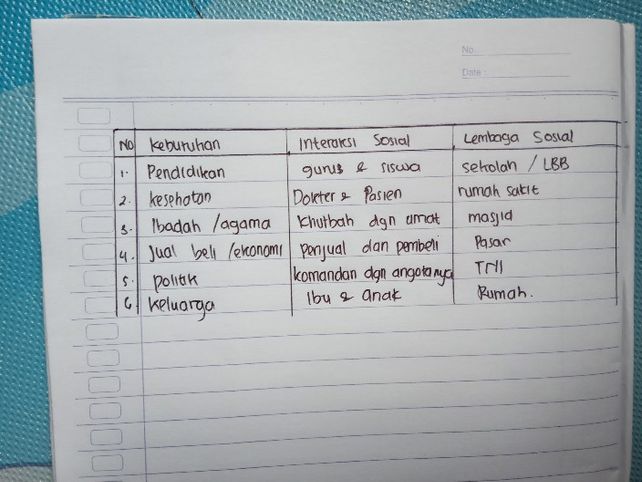 No
Date :
No Keburuhan Interaksi Sosial Lembaga Sosial
1. Pendidikan gurus & siswa sekolah / LBB
2. kesehatan Dokter & Pasien rumah sakit
3. Ibadah / agama Khutbah dgn umat masjid
4. Jual beli / ekonomi penjual dan pembeli Pasar
5. politik komandan dgn angotanya TNI
6 keluarga Ibu & anak Rumah.